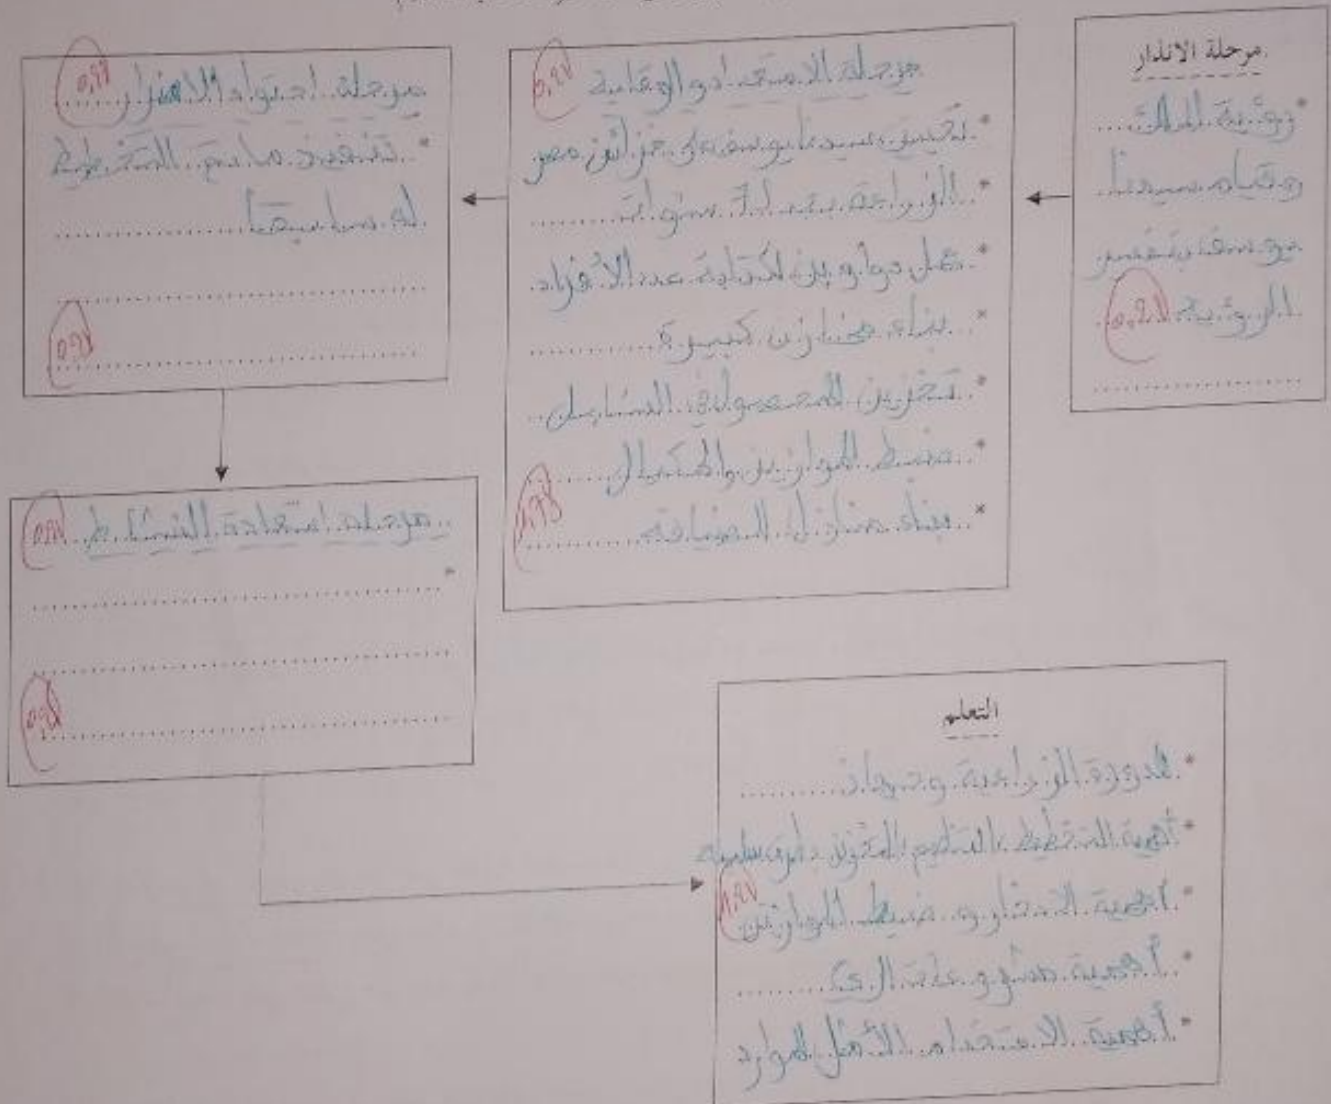 مرحلة الانذار
* رؤية الملك ....
وقيام سيدنا
يوسف بتفسير
الرؤية
مرحلة الاستعداد والوقاية
* تعيين سيدنا يوسف على خزائن مصر
* الزراعة بعد سنوات
* عمل دواوين لكتابة عدد الأفراد
* بناء مخازن كبيرة
* تخزين المحصول في السنابل
* ضبط الموازين والمكيال
* بناء منازل الضيافة
مرحلة احتواء الاضرار
* تنفيذ ما تم التخطيط
له سابقاً
مرحلة استعادة النشاط
*
التعلم
* الدورة الزراعية
* أهمية التخطيط التنظيم التخزين
* أهمية الادخار و ضبط الموازين
* أهمية مشروعات الري
* أهمية الاستخدام الأمثل للموارد